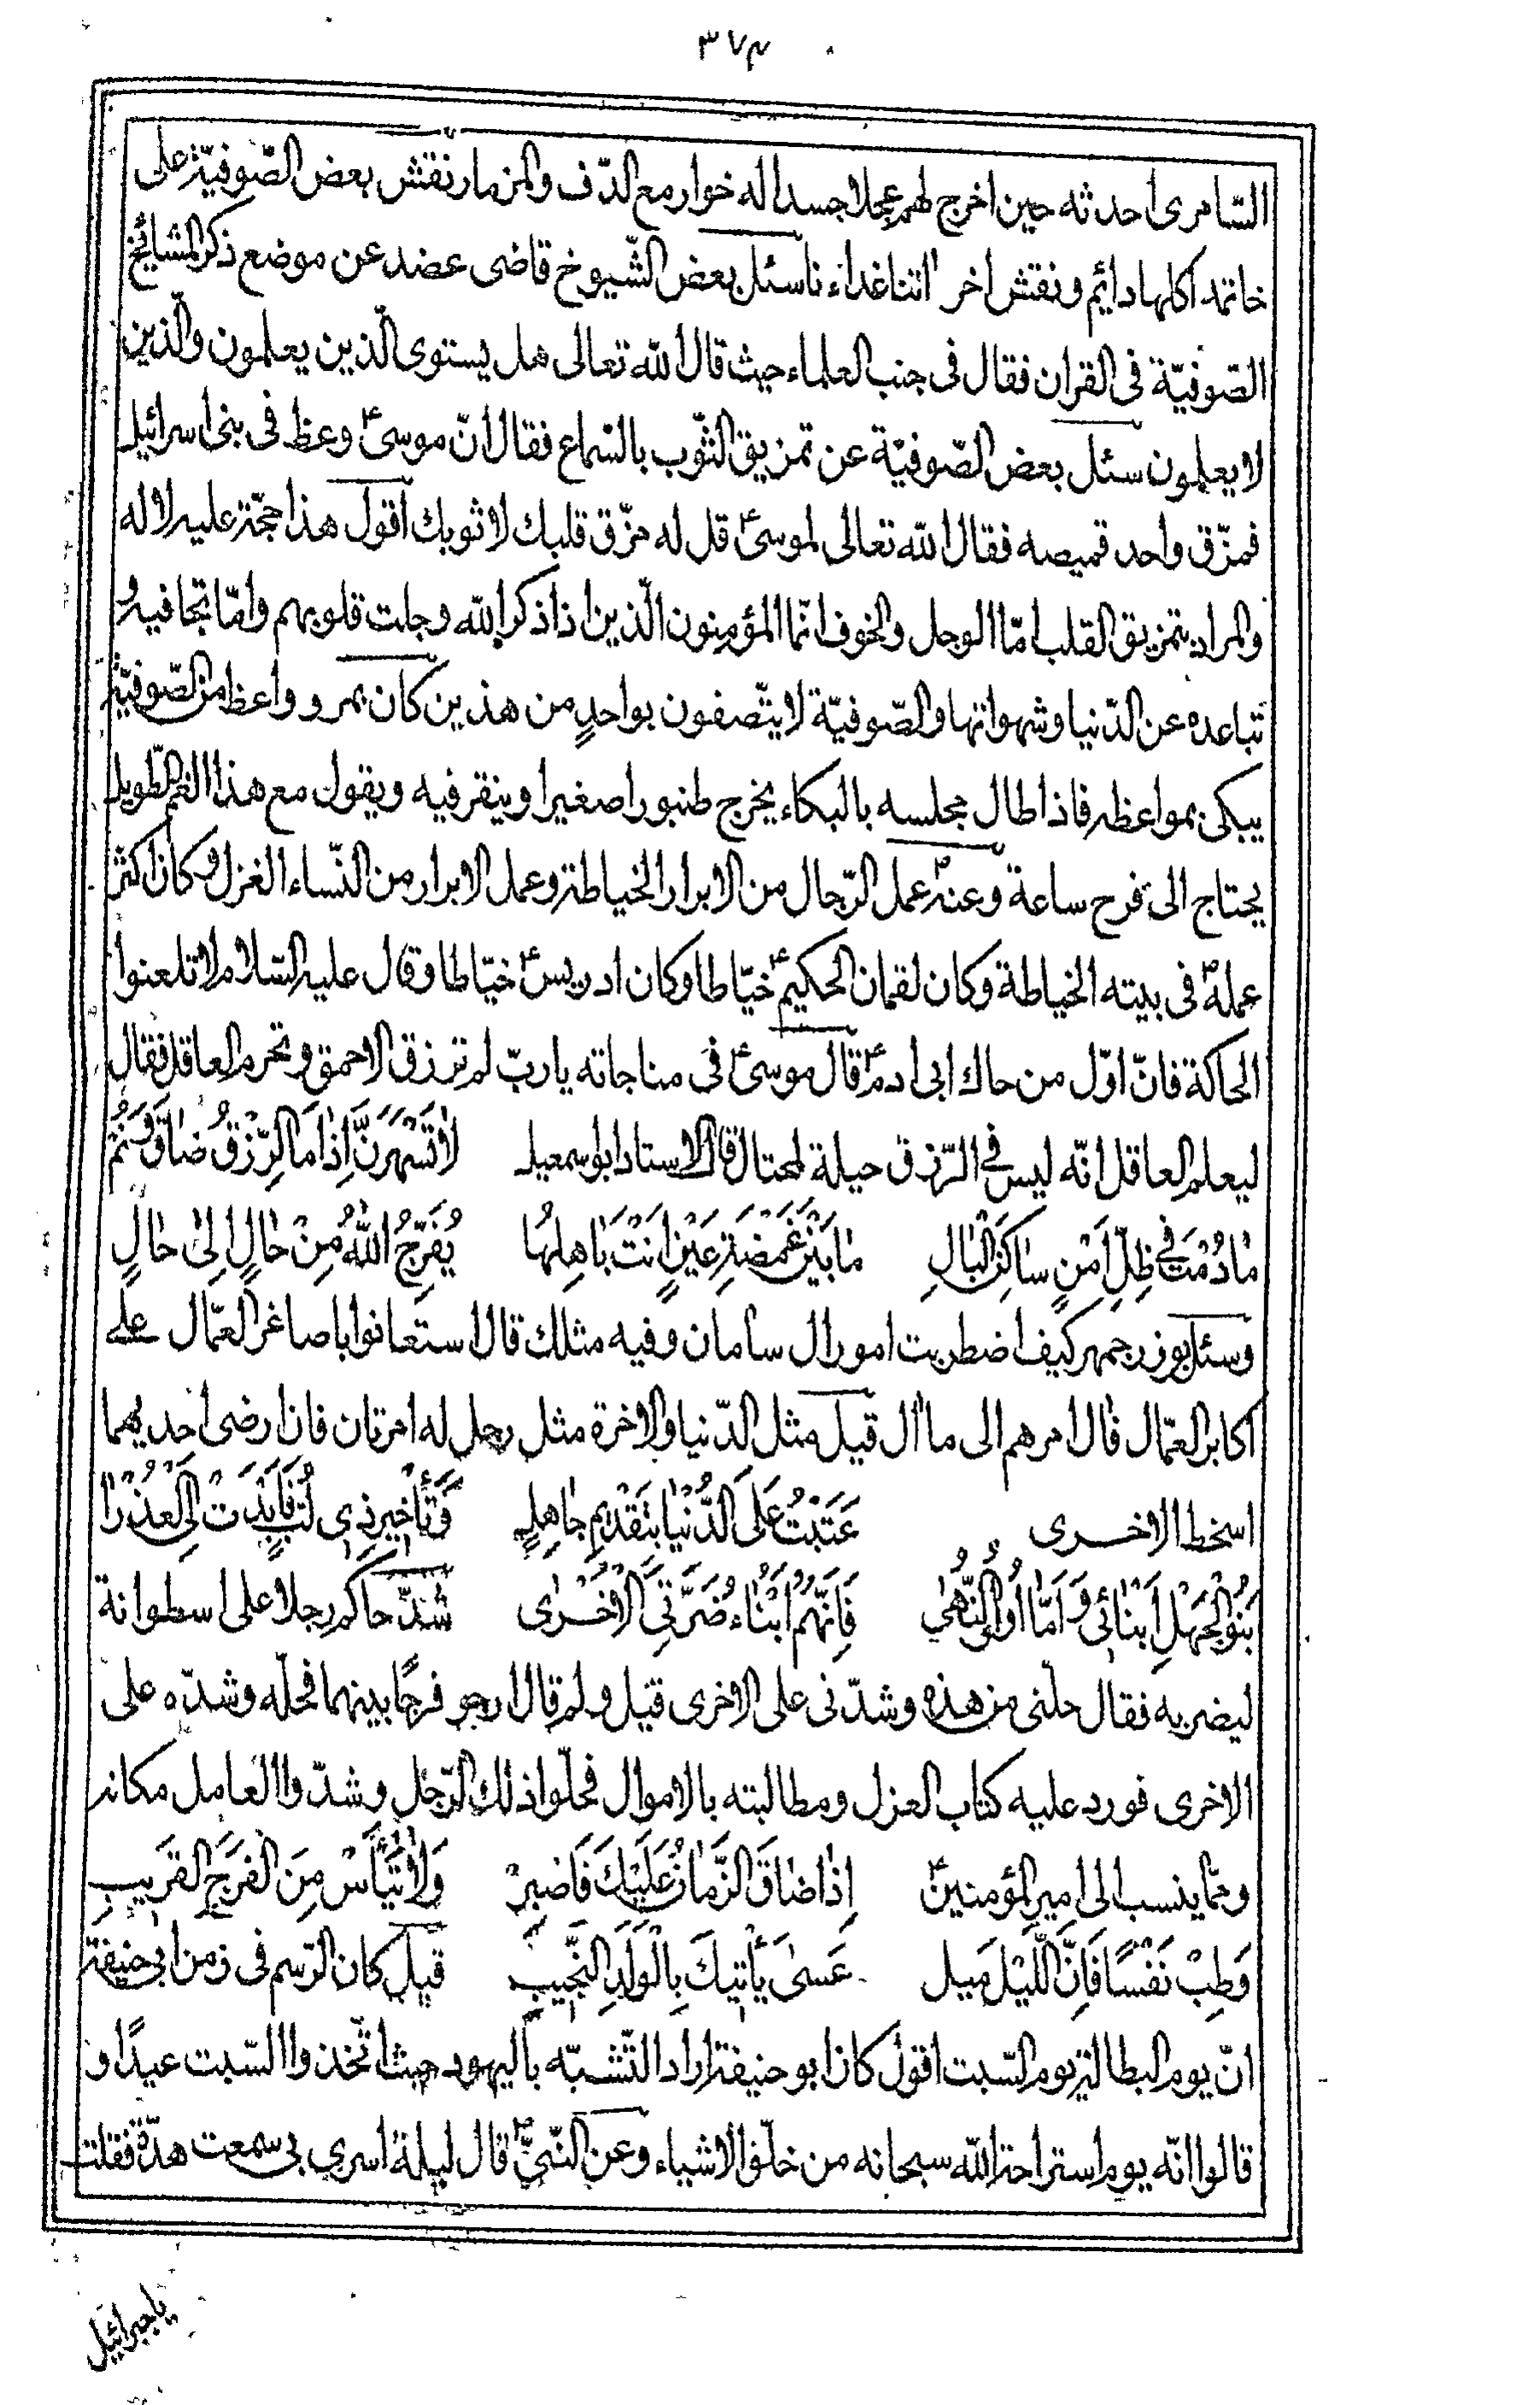 ٣٧٤
السّامرى احدثه حين اخرج لهم عجلا جسدا له خوار مع الدّف والمزمار نقش بعض الصّوفيّة على
خاتمه اكلها دائم ونقش اخر اتنا غداءنا سئل بعض الشّيوخ قاضى عضد عن موضع ذكر المشائخ
الصّوفيّة فى القران فقال فى جنب العلماء حيث قال الله تعالى هل يستوى الّذين يعلمون والّذين
لا يعلمون سئل بعض الصّوفيّة عن تمزيق الثّوب بالسّماع فقال انّ موسىؑ وعظ فى بنى اسرائيل
فمزّق واحد قميصه فقال الله تعالى لموسىؑ قل له مزّق قلبك لا ثوبك اقول هذا حجّة عليه لا له
والمراد بتمزيق القلب امّا الوجل والخوف انّما المؤمنون الّذين اذا ذكر الله وجلت قلوبهم وامّا تجافيه و
تباعده عن الدّنيا وشهواتها والصّوفيّة لا يتّصفون بواحدٍ من هذين كان بمرو واعظ من الصّوفيّة
يبكى بمواعظه فاذا طال مجلسه بالبكاء يخرج طنبورا صغيرا وينقر فيه ويقول مع هذا الغم الطّويل
يحتاج الى فرح ساعة وعنهؐ عمل الرّجال من الابرار الخياطة وعمل الابرار من النّساء الغزل وكان اكثر
عملهؐ فى بيته الخياطة وكان لقمان الحكيمؑ خيّاطا وكان ادريسؑ خيّاطا وقال عليه السّلام لا تلعنوا
الحاكة فانّ اوّل من حاك ابى ادمؑ قال موسىؑ فى مناجاته يا ربّ لم ترزق الاحمق وتحرم العاقل فقال
ليعلم العاقل انّه ليس في الرّزق حيلة لمحتال قال الاستاد ابو سمعيل لاٰ تَسْهَرَنَّ اِذٰا مَا الرِّزْقُ ضٰاقَ وَنَمْ
مٰا دُمْتَ فِي ظِلِّ اَمْنٍ سٰاكِنَ الْبٰالِ مٰا بَيْنَ غَمْضَةِ عَيْنٍ اَنْتَ بَاهِلُهٰا يُفَرِّجُ اللهُ مِنْ حٰالٍ اِلىٰ حٰالٍ
وسئل بوزرجمهر كيف اضطربت امور ال سامان وفيه مثلك قال استعانوا باصاغر العمّال على
اكابر العمّال فال امرهم الى ما ال قيل مثل الدّنيا والاخرة مثل رجل له امرتان فان ارضى احديهما
اسخط الاخرى عَتَبْتُ عَلَى الدُّنْيٰا بِتَقْدِيمِ جٰاهِلٍ وَتَأْخِيرِ ذِى لُبٍّ فَاَبْدَتْ لِىَ الْعُذْرٰا
بَنُو الْجَهْلِ اَبْنٰائِى وَاَمّٰا اُولُو النُّهىٰ فَاِنَّهُمْ اَبْنٰاءُ ضَرَّتِىَ الْاُخْرٰى شدّ حاكم رجلا على اسطوانة
ليضربه فقال حلّنى من هذه وشدّنى على الاخرى قيل ولم قال ارجو فرجًا بينهما فحلّه وشدّه على
الاخرى فورد عليه كتاب العزل ومطالبته بالاموال فحلّوا ذلك الرّجل وشدّوا العامل مكانه
وممّا ينسب الى امير المؤمنينؑ اِذٰا ضٰاقَ الزَّمٰانُ عَلَيْكَ فَاصْبِرْ وَلاٰ تَيْأَسْ مِنَ الْفَرَجِ الْقَرِيبِ
وَطِبْ نَفْسًا فَاِنَّ اللَّيْلَ مَيل عَسىٰ يَأْتِيكَ بِالْوَلَدِ النَّجِيبِ قيل كان الرّسم فى زمن ابى حنيفة
انّ يوم البطالة يوم السّبت اقول كان ابو حنيفة اراد التّشبّه باليهود حيث اتّخذوا السّبت عيدًا و
قالوا انّه يوم استراحة الله سبحانه من خلق الاشياء وعن النّبىّؐ قال ليلة اسرى بى سمعت هدّة فقلت
يا جبرائيل